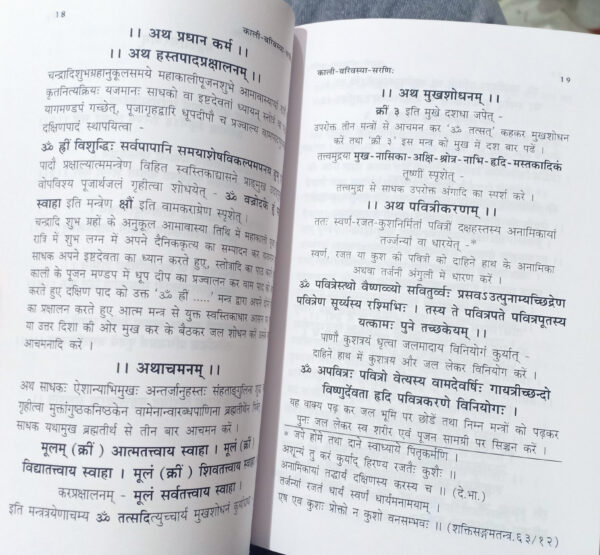 18
।। अथ प्रधान कर्म ।।
।। अथ हस्तपादप्रक्षालनम् ।।
चन्द्रादिशुभग्रहानुकूलसमये महाकालीपूजनशुभे आमावास्यायां
कृतनित्यक्रियः यजमानः साधको वा इष्टदेवतां ध्यायन्
यागमण्डपं गच्छेत्, पूजागृहद्वारि धूपदीपौ च प्रज्वाल्य
दक्षिणपादं स्थापयित्वा -
ॐ ह्रीं विशुद्धिः सर्वपापानि समयाशेषविकल्पमपनय
पादौ प्रक्षाल्यात्ममन्त्रेण विहित स्वस्तिकाद्यासने प्राङ्मुख
वोपविश्य पूजार्थजलं गृहीत्वा शोधयेत् - ॐ वज्रोदके हुं
स्वाहा इति मन्त्रेण क्षौं इति वामकराग्रेण स्पृशेत् ।
चन्द्रादि शुभ ग्रहों के अनुकूल आमावास्या तिथि में महाकाली
रात्रि में शुभ लग्न में अपने दैनिककृत्य का सम्पादन कर
साधक अपने इष्टदेवता का ध्यान करते हुए, स्तोत्रादि का पाठ
काली के पूजन मण्डप में धूप दीप का प्रज्वालन कर वाम पाद
करते हुए दक्षिण पाद को उक्त 'ॐ ह्रीं .....' मन्त्र द्वारा अपने
का प्रक्षालन करते हुए आत्म मन्त्र से युक्त स्वस्तिकाधार आसन
या उत्तर दिशा की ओर मुख कर के बैठकर जल शोधन करें
आचमनादि करें ।
।। अथाचमनम् ।।
अथ साधकः ऐशान्याभिमुखः अन्तर्जानुहस्तः संहताङ्गुलिना
गृहीत्वा मुक्तांगुष्ठकनिष्ठेन वामेनान्वारब्धपाणिना ब्रह्मतीर्थेन
साधक यथामुख ब्रह्मतीर्थ से तीन बार आचमन करें ।
मूलम् (क्रीं) आत्मतत्त्वाय स्वाहा । मूलं (क्रीं)
विद्यातत्त्वाय स्वाहा । मूलं (क्रीं) शिवतत्त्वाय स्वाहा
करप्रक्षालनम् - मूलं सर्वतत्त्वाय स्वाहा ।
इति मन्त्रत्रयेणाचम्य ॐ तत्सदित्युच्चार्य मुखशोधनं
काली-वरिवस्या-सरणिः
19
।। अथ मुखशोधनम् ।।
क्रीं ३ इति मुखे दशधा जपेत् -
उपरोक्त तीन मन्त्रो से आचमन कर 'ॐ तत्सत्' कहकर मुखशोधन
करें तथा 'क्रीं ३' इस मन्त्र को मुख में दश बार पढें ।
तत्त्वमुद्रया मुख-नासिका-अक्षि-श्रोत्र-नाभि-हृदि-मस्तकादिकं
तूष्णीं स्पृशेत् -
तत्त्वमुद्रा से साधक उपरोक्त अंगादि का स्पर्श करें ।
।। अथ पवित्रीकरणम् ।।
ततः स्वर्ण-रजत-कुशनिर्मितां पवित्रीं दक्षहस्तस्य अनामिकायां
तर्ज्जन्यां वा धारयेत् -*
स्वर्ण, रजत या कुश की पवित्री को दाहिने हाथ के अनामिका
अथवा तर्जनी अंगुली में धारण करें ।
ॐ पवित्रेस्त्थो वैष्णव्यौ सवितुर्व्वः प्रसवऽउत्पुनाम्यच्छिद्रेण
पवित्रेण सूर्य्यस्य रश्मिभिः । तस्य ते पवित्रपते पवित्रपूतस्य
यत्कामः पुने तच्छकेयम् ।।
पाणौ कुशत्रयं धृत्वा जलमादाय विनियोगं कुर्यात् -
दाहिने हाथ में कुशत्रय और जल लेकर विनियोग करें ।
ॐ अपवित्रः पवित्रो वेत्यस्य वामदेवर्षिः गायत्रीच्छन्दो
विष्णुर्देवता हृदि पवित्रकरणे विनियोगः ।
यह वाक्य पढ़ कर जल भूमि पर छोडें तथा निम्न मन्त्रों को पढ़कर
पुनः जल लेकर स्व शरीर एवं पूजन सामग्री पर सिञ्चन करें ।
* जपे होमे तथा दाने स्वाध्याये पितृकर्मणि ।
अशून्यं तु करं कुर्याद् हिरण्य रजतैः कुशैः ।।
अनामिकायां तद्धार्यं दक्षिणस्य करस्य च ।। (दे.भा.)
तर्जन्यां रजतं धार्यं स्वर्णं धार्यमनामायाम् ।
एष एव कुशः प्रोक्तो न कुशो वनसम्भवः ।। (शक्तिसङ्गमतन्त्र,६३/१२)